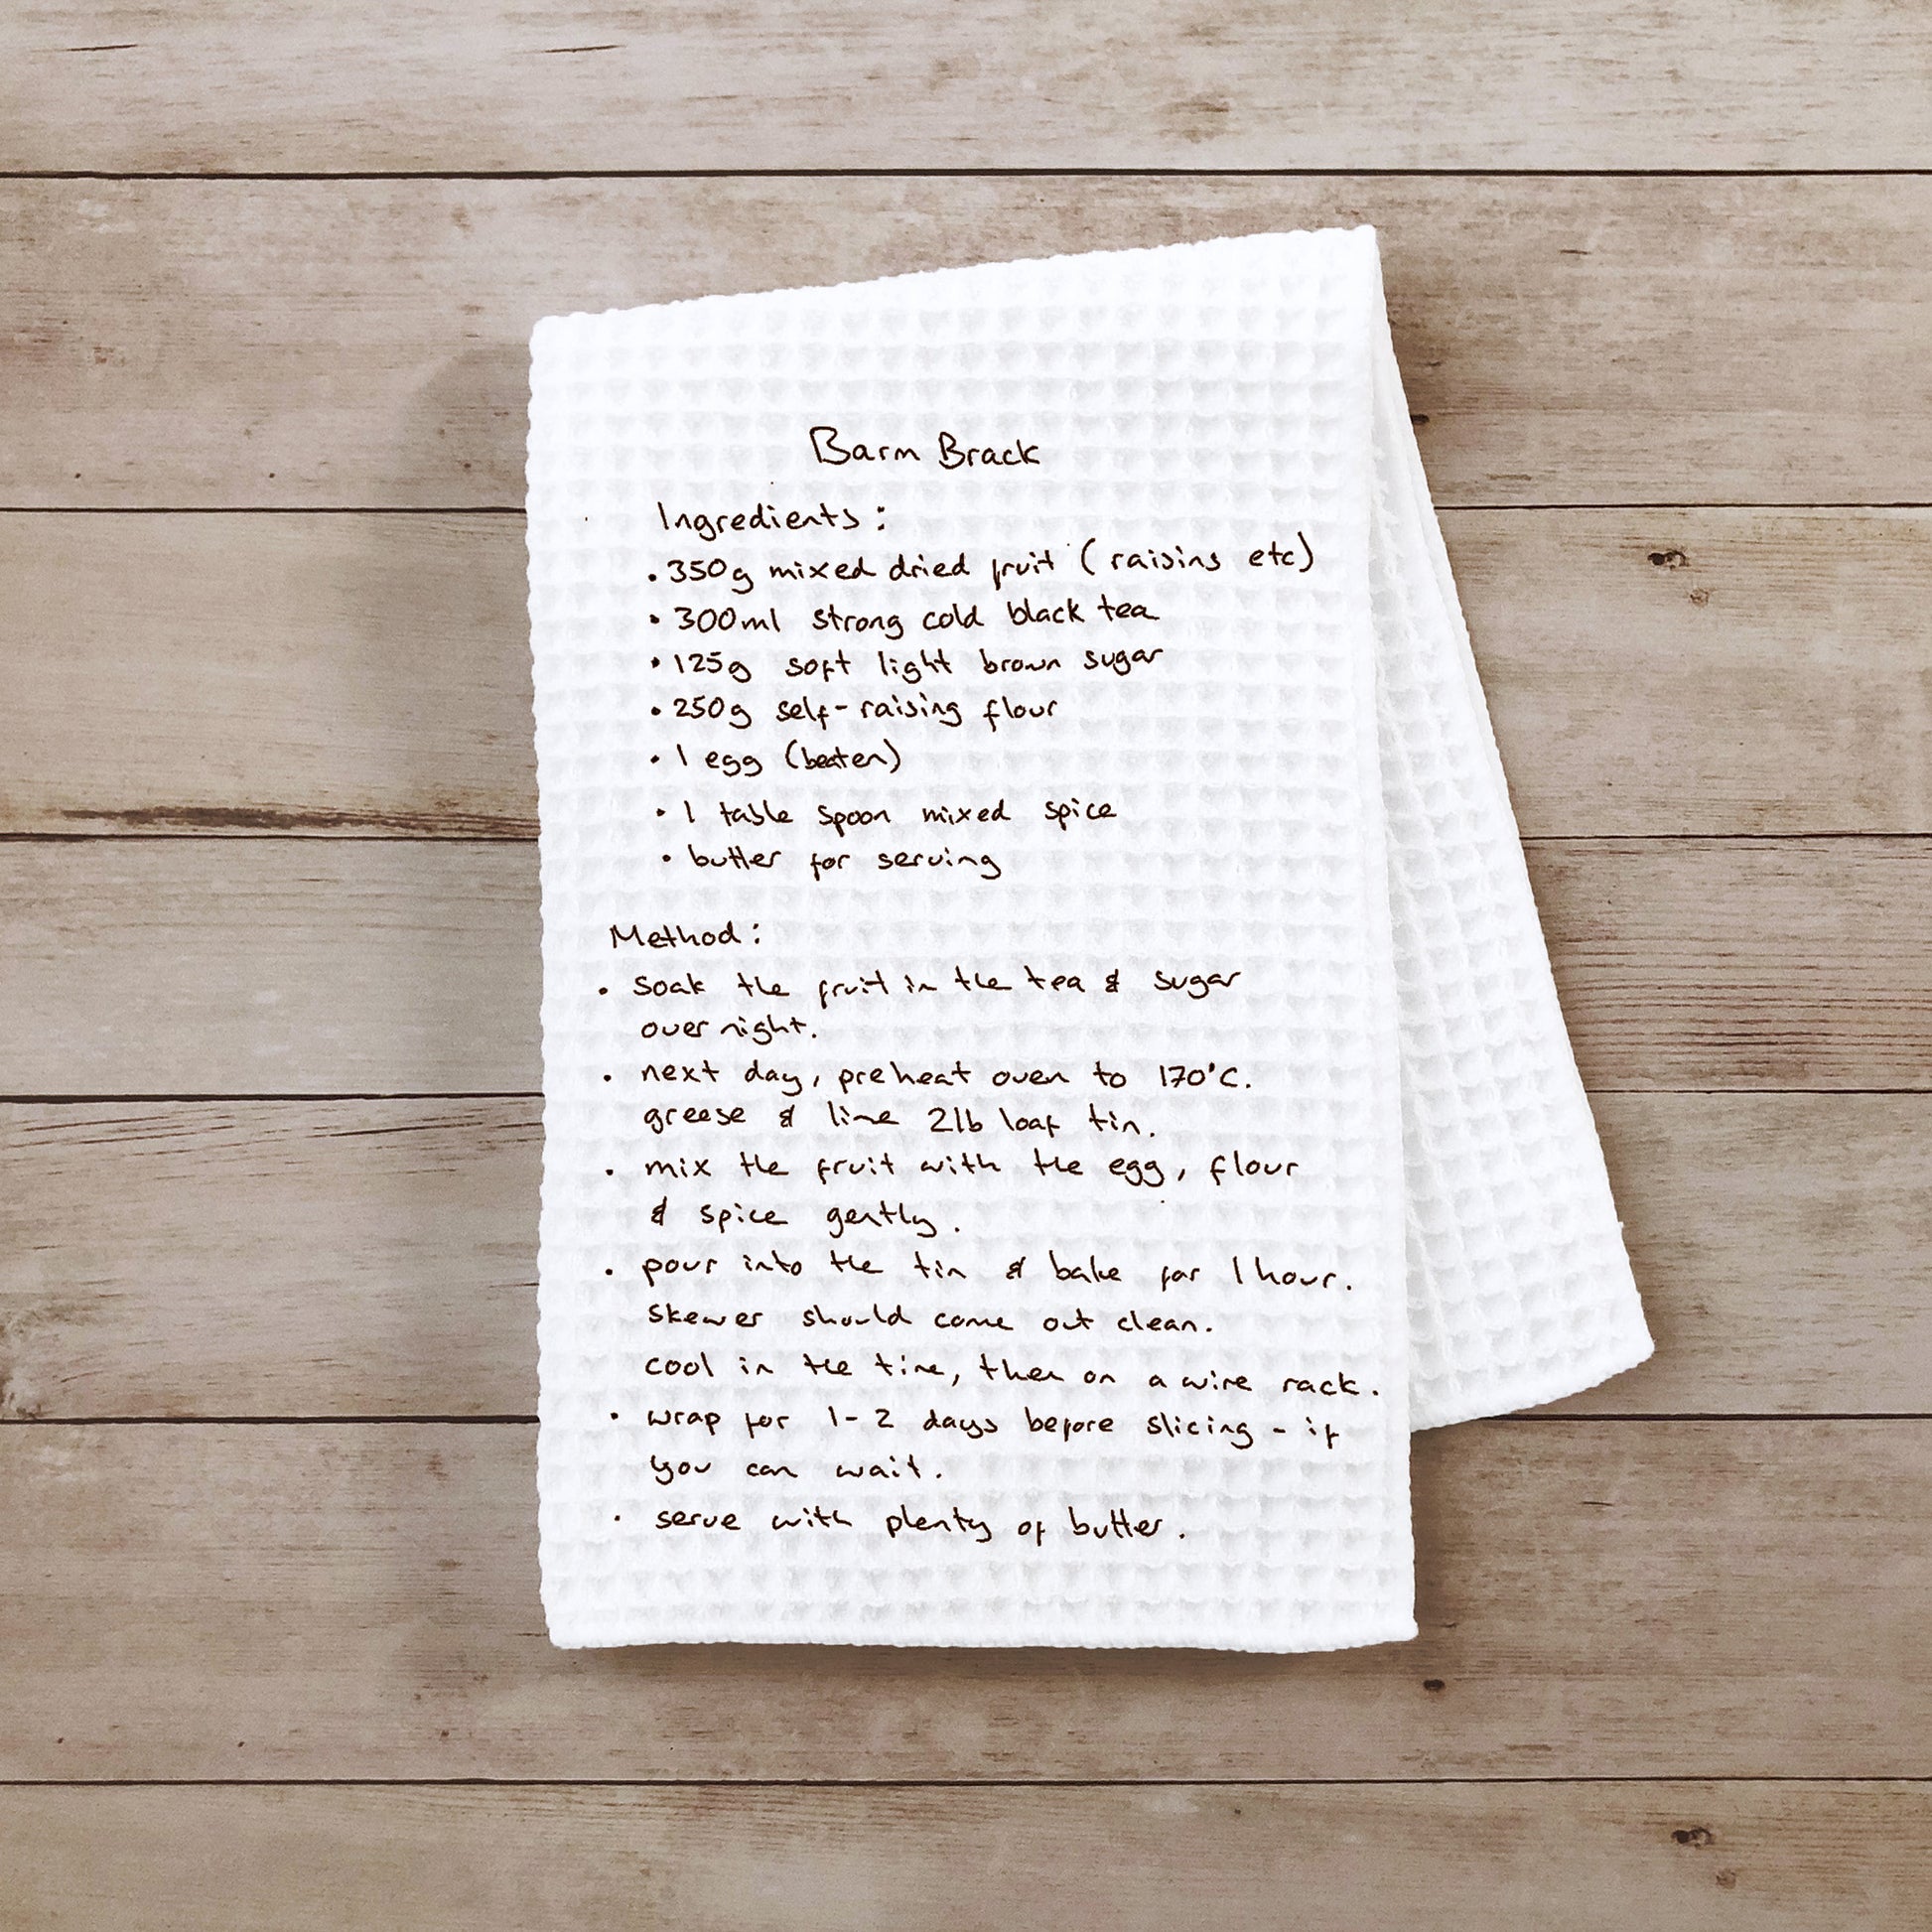 Barm Brack
Ingredients:
• 350g mixed dried fruit (raisins etc)
• 300ml strong cold black tea
• 125g soft light brown sugar
• 250g self-raising flour
• 1 egg (beaten)
• 1 table spoon mixed spice
• butter for serving
Method:
• soak the fruit in the tea & sugar
over night.
• next day, preheat oven to 170°C.
greese & line 2lb loaf tin.
• mix the fruit with the egg, flour
& spice gently.
• pour into the tin & bake for 1 hour.
skewer should come out clean.
cool in the tine, then on a wire rack.
• wrap for 1-2 days before slicing - if
you can wait.
• serve with plenty of butter.